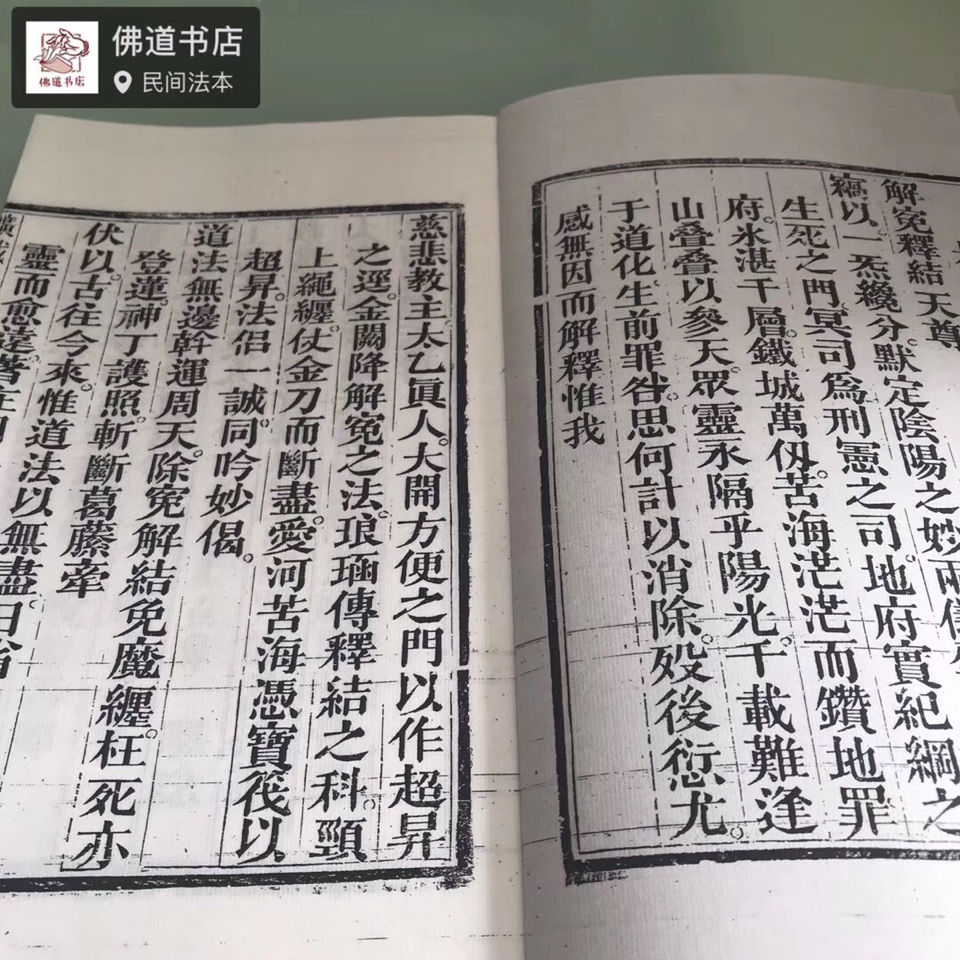 佛道书店
民间法本
佛道书店
解冤釋結天尊
竊以一炁纔分默定陰陽之妙兩儀
生死之門冥司爲刑憲之司地府實紀綱之
府氷湛千層鐵城萬仭苦海茫茫而鑽地罪
山叠叠以參天眾靈永隔乎陽光千載難逢
于道化生前罪咎思何計以消除歿後愆尤
感無因而解釋惟我
慈悲教主太乙眞人大開方便之門以作超昇
之逕金闕降解冤之法琅函傳釋結之科頸
上繩纏仗金刀而斷盡愛河苦海憑寶筏以
超昇法侶一誠同吟妙偈
道法無邊斡運周天除冤解結免魔纏枉死亦
登蓮神丁護照斬斷葛藤牽
伏以古往今來惟道法以無盡
靈而愈遠著在